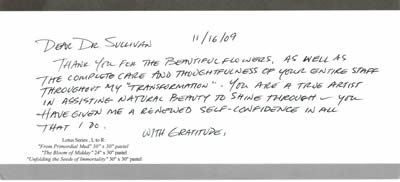 DEAR DR SULLIVAN 11/16/09
THANK YOU FOR THE BEAUTIFUL FLOWERS, AS WELL AS
THE COMPLETE CARE AND THOUGHTFULNESS OF YOUR ENTIRE STAFF
THROUGHOUT MY "TRANSFORMATION". YOU ARE A TRUE ARTIST
IN ASSISTING NATURAL BEAUTY TO SHINE THROUGH – YOU
HAVE GIVEN ME A RENEWED SELF-CONFIDENCE IN ALL
THAT I DO.
WITH GRATITUDE,
Lotus Series, L to R:
"From Primordial Mud" 30" x 30" pastel
"The Bloom of Midday" 24" x 30" pastel
"Unfolding the Seeds of Immortality" 30" x 30" pastel